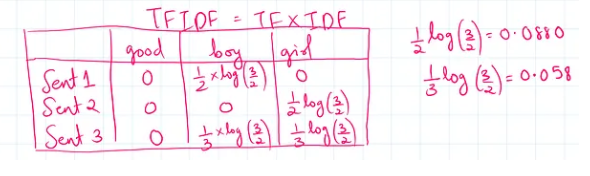 TFIDF = TF x IDF
good boy girl
Sent 1 0 1/2 x log(3/2) 0
Sent 2 0 0 1/2 log(3/2)
Sent 3 0 1/3 x log(3/2) 1/3 log(3/2)
1/2 log(3/2) = 0.0880
1/3 log(3/2) = 0.058